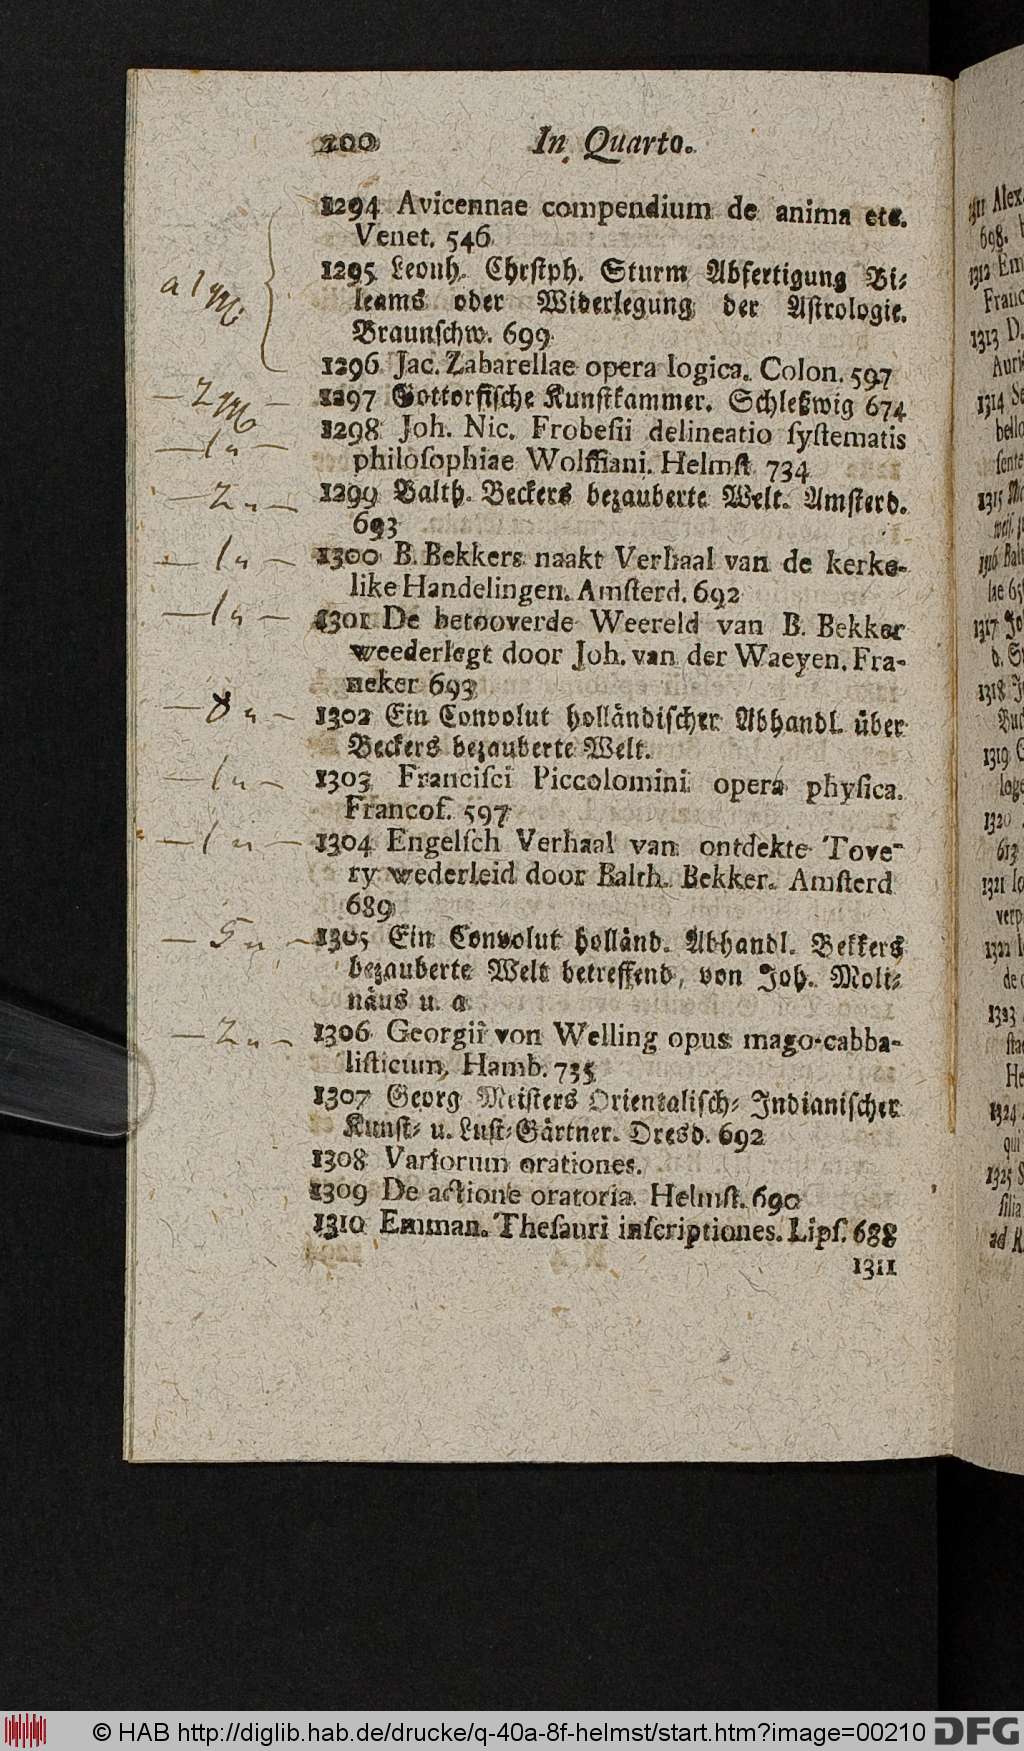 200 In Quarto.
1294 Avicennae compendium de anima etc.
Venet. 546
1295 Leonh. Chrstph. Sturm Abfertigung Bi-
leams oder Widerlegung der Astrologie.
Braunschw. 699
1296 Jac. Zabarellae opera logica. Colon. 597
1297 Gottorfische Kunstkammer. Schleßwig 674
1298 Joh. Nic. Frobesii delineatio systematis
philosophiae Wolffiani. Helmst. 734
1299 Balth. Beckers bezauberte Welt. Amsterd.
693
1300 B. Bekkers naakt Verhaal van de kerke-
like Handelingen. Amsterd. 692
1301 De betooverde Weereld van B. Bekker
weederlegt door Joh. van der Waeyen. Fra-
neker 693
1302 Ein Convolut holländischer Abhandl. über
Beckers bezauberte Welt.
1303 Francisci Piccolomini opera physica.
Francof. 597
1304 Engelsch Verhaal van ontdekte Tove-
ry wederleid door Balth. Bekker. Amsterd
689
1305 Ein Convolut holländ. Abhandl. Bekkers
bezauberte Welt betreffend, von Joh. Moli-
näus u. a
1306 Georgii von Welling opus mago-cabba-
listicum, Hamb. 735
1307 Georg Meisters Orientalisch-Indianischer
Kunst- u. Lust-Gärtner. Dresd. 692
1308 Variorum orationes.
1309 De actione oratoria. Helmst. 690
1310 Emman. Thesauri inscriptiones. Lips. 688
1311
© HAB http://diglib.hab.de/drucke/q-40a-8f-helmst/start.htm?image=00210 DFG